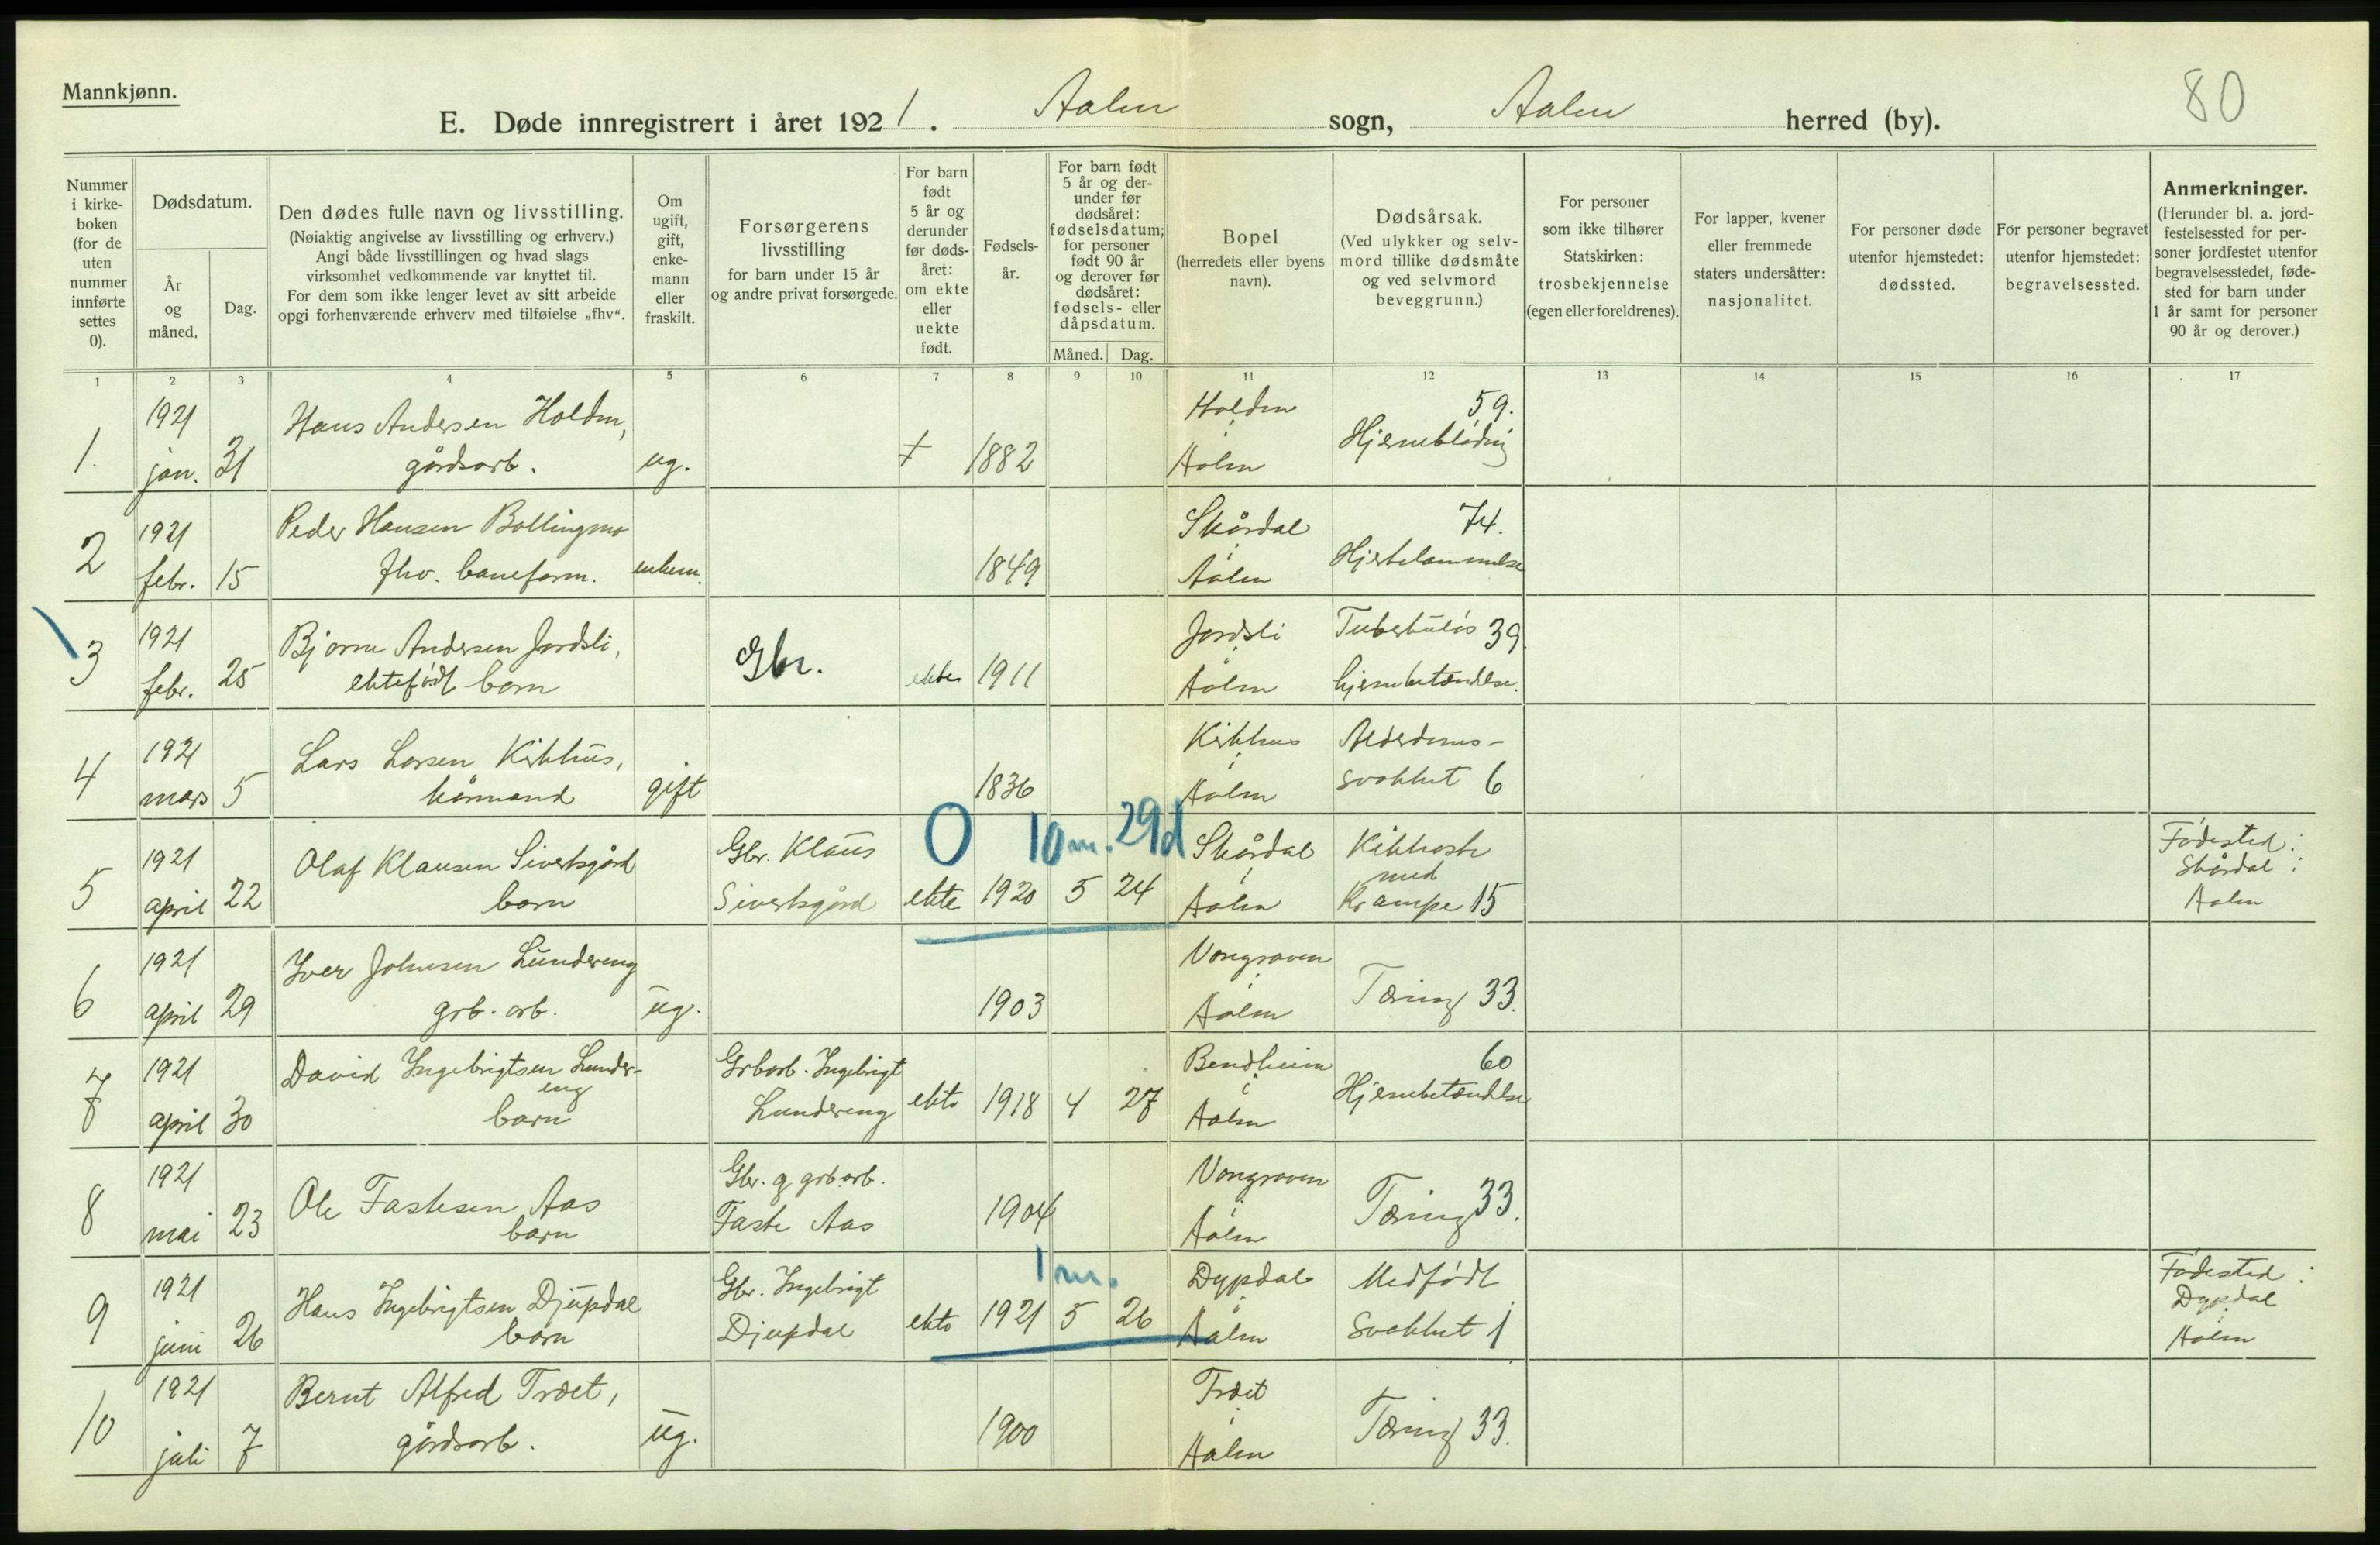 Mannkjønn.
E. Døde innregistrert i året 1921. Aalen sogn, Aalen herred (by).
80
Nummer i kirke- boken (for de uten nummer innførte settes 0).
Dødsdatum.
År og måned.
Dag.
Den dødes fulle navn og livsstilling.
(Nøiaktig angivelse av livsstilling og erhverv.)
Angi både livsstillingen og hvad slags
virksomhet vedkommende var knyttet til.
For dem som ikke lenger levet av sitt arbeide
opgi forhenværende erhverv med tilføielse „fhv“.
Om ugift, gift, enke- mann eller fraskilt.
Forsørgerens
livsstilling
for barn under 15 år
og andre privat forsørgede.
For barn født 5 år og derunder før døds- året: om ekte eller uekte født.
Fødsels- år.
For barn født 5 år og der- under før dødsåret: fødselsdatum; for personer født 90 år og derover før dødsåret: fødsels- eller dåpsdatum.
Måned.
Dag.
Bopel
(herredets eller byens
navn).
Dødsårsak.
(Ved ulykker og selv-
mord tillike dødsmåte
og ved selvmord
beveggrunn.)
For personer
som ikke tilhører
Statskirken:
trosbekjennelse
(egen eller foreldrenes).
For lapper, kvener
eller fremmede
staters undersåtter:
nasjonalitet.
For personer døde
utenfor hjemstedet:
dødssted.
For personer begravet
utenfor hjemstedet:
begravelsessted.
Anmerkninger.
(Herunder bl. a. jord-
festelsessted for per-
soner jordfestet utenfor
begravelsesstedet, føde-
sted for barn under
1 år samt for personer
90 år og derover.)
1 2 3 4 5 6 7 8 9 10 11 12 13 14 15 16 17
1. 1921 jan. 31 Hans Andersen Holden, gårdsarb. ug. 1882 Holden i Aalen 59. Hjerneblødning
2 1921 febr. 15 Peder Hansen Bollingmo fhv. baneform. enkem. 1849 Skårdal i Aalen 74. Hjertelammelse
3 1921 febr. 25 Bjarne Andersen Jordsli, ektefødt barn Gbr. ekte 1911 Jordsli i Aalen Tuberkuløs 39 hjernebetændelse.
4 1921 mars 5 Lars Larsen Kirkhus, kårmand gift 1836 Kirkhus i Aalen Alderdoms- svakhet 6
0 10 m. 29 d
5 1921 april 22 Olaf Klausen Sivertsgård barn Gbr. Klaus Sivertsgård ekte 1920 5 24 Skårdal i Aalen Kikhoste med Krampe 15 Fødested: Skårdal i Aalen
6 1921 april 29 Iver Johnsen Lundereng grb. arb. ug. 1903 Vongraven i Aalen Tæring 33.
7 1921 april 30 David Ingebrigtsen Lunder- eng barn Grbarb. Ingebrigt Lundereng ekte 1918 4 27 Bendheim i Aalen 60 Hjernebetændelse
8 1921 mai 23 Ole Fastesen Aas barn Gbr. g grb.arb. Faste Aas 1904 Vongraven i Aalen Tæring 33.
1 m.
9 1921 juni 26 Hans Ingebrigtsen Djupdal barn Gbr. Ingebrigt Djupdal ekte 1921 5 26 Dypdal i Aalen Medfødt svakhet 1 Fødested: Dypdal i Aalen
10 1921 juli 7 Bernt Alfred Trøet, gårdsarb. ug. 1900 Trøet i Aalen Tæring 33.